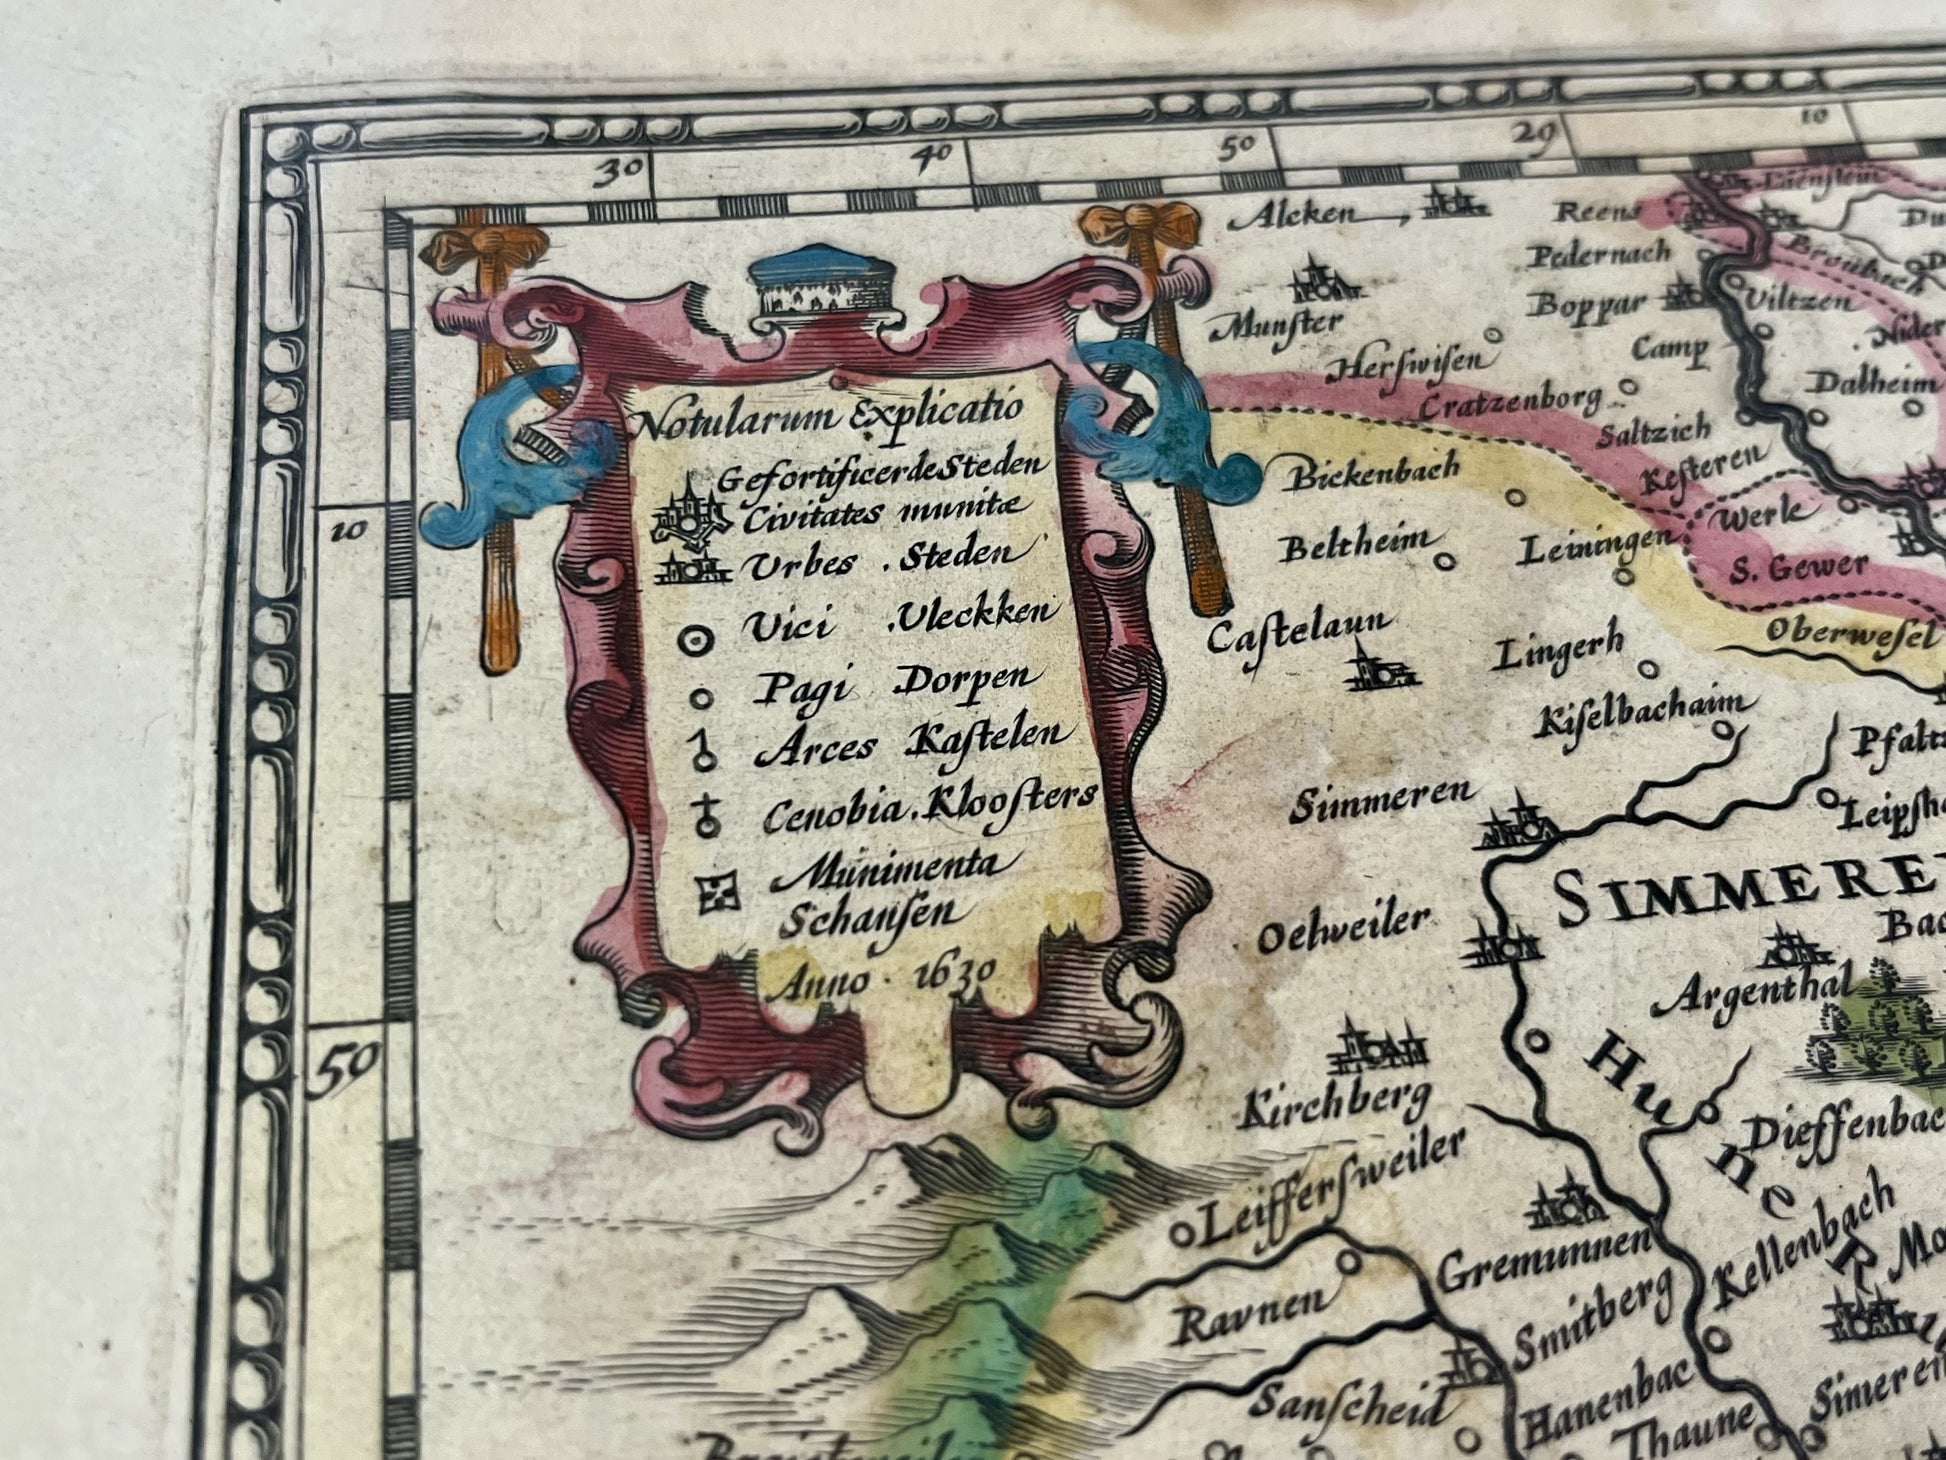 30
40
50
29
10
Notularum Explicatio
Gefortificerde Steden
Civitates munitæ
Urbes . Steden
Vici . Vleckken
Pagi Dorpen
Arces Kaſtelen
Cenobia . Klooſters
Munimenta
Schanſen
Anno . 1630
10
50
Alcken
Reens
Munſter
Pedernach
Boppar
Viltzen
Braubach
Nider
Herſwiſen
Camp
Dalheim
Cratzenborg
Saltzich
Keſteren
Bickenbach
Werle
Beltheim
Leiningen
S. Gewer
Caſtelaun
Lingerh
Oberweſel
Kiſelbachaim
Pfaltz
Simmeren
Leipſha
SIMMERE
Oelweiler
Bac
Argenthal
Kirchberg
HUNE R
Dieffenbac
Leifferſweiler
Gremunnen
Kellenbach
Mo
Ravnen
Smitberg
Sanſcheid
Hanenbac
Simeren
Thaune